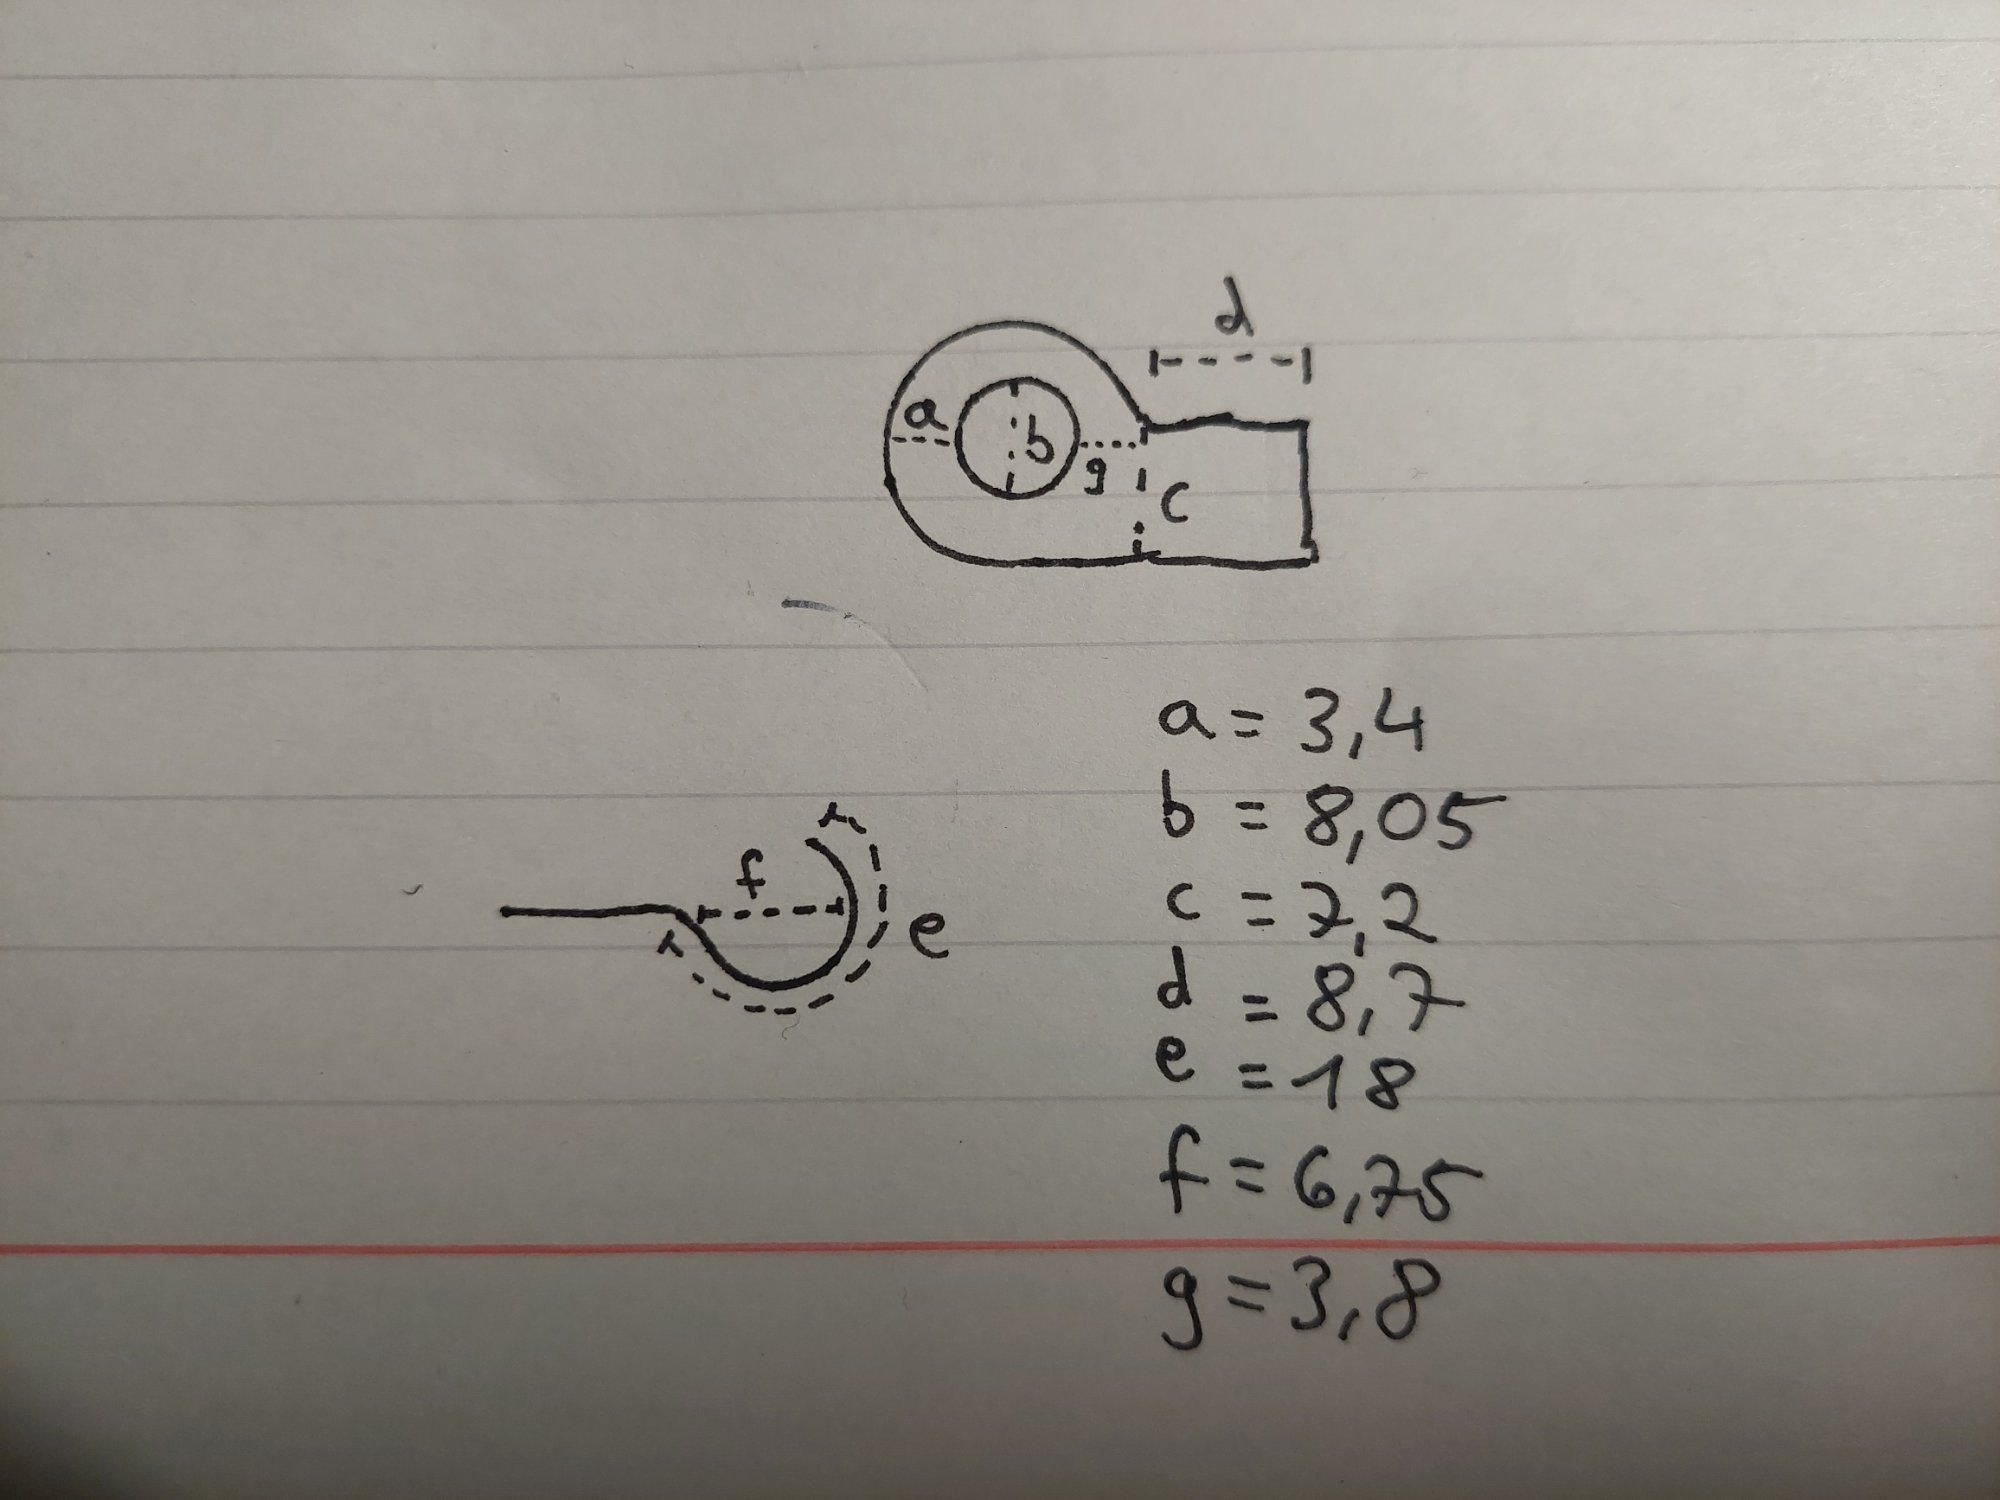 d
a
b
g
c
f
e
a = 3,4
b = 8,05
c = 7,2
d = 8,7
e = 18
f = 6,75
g = 3,8